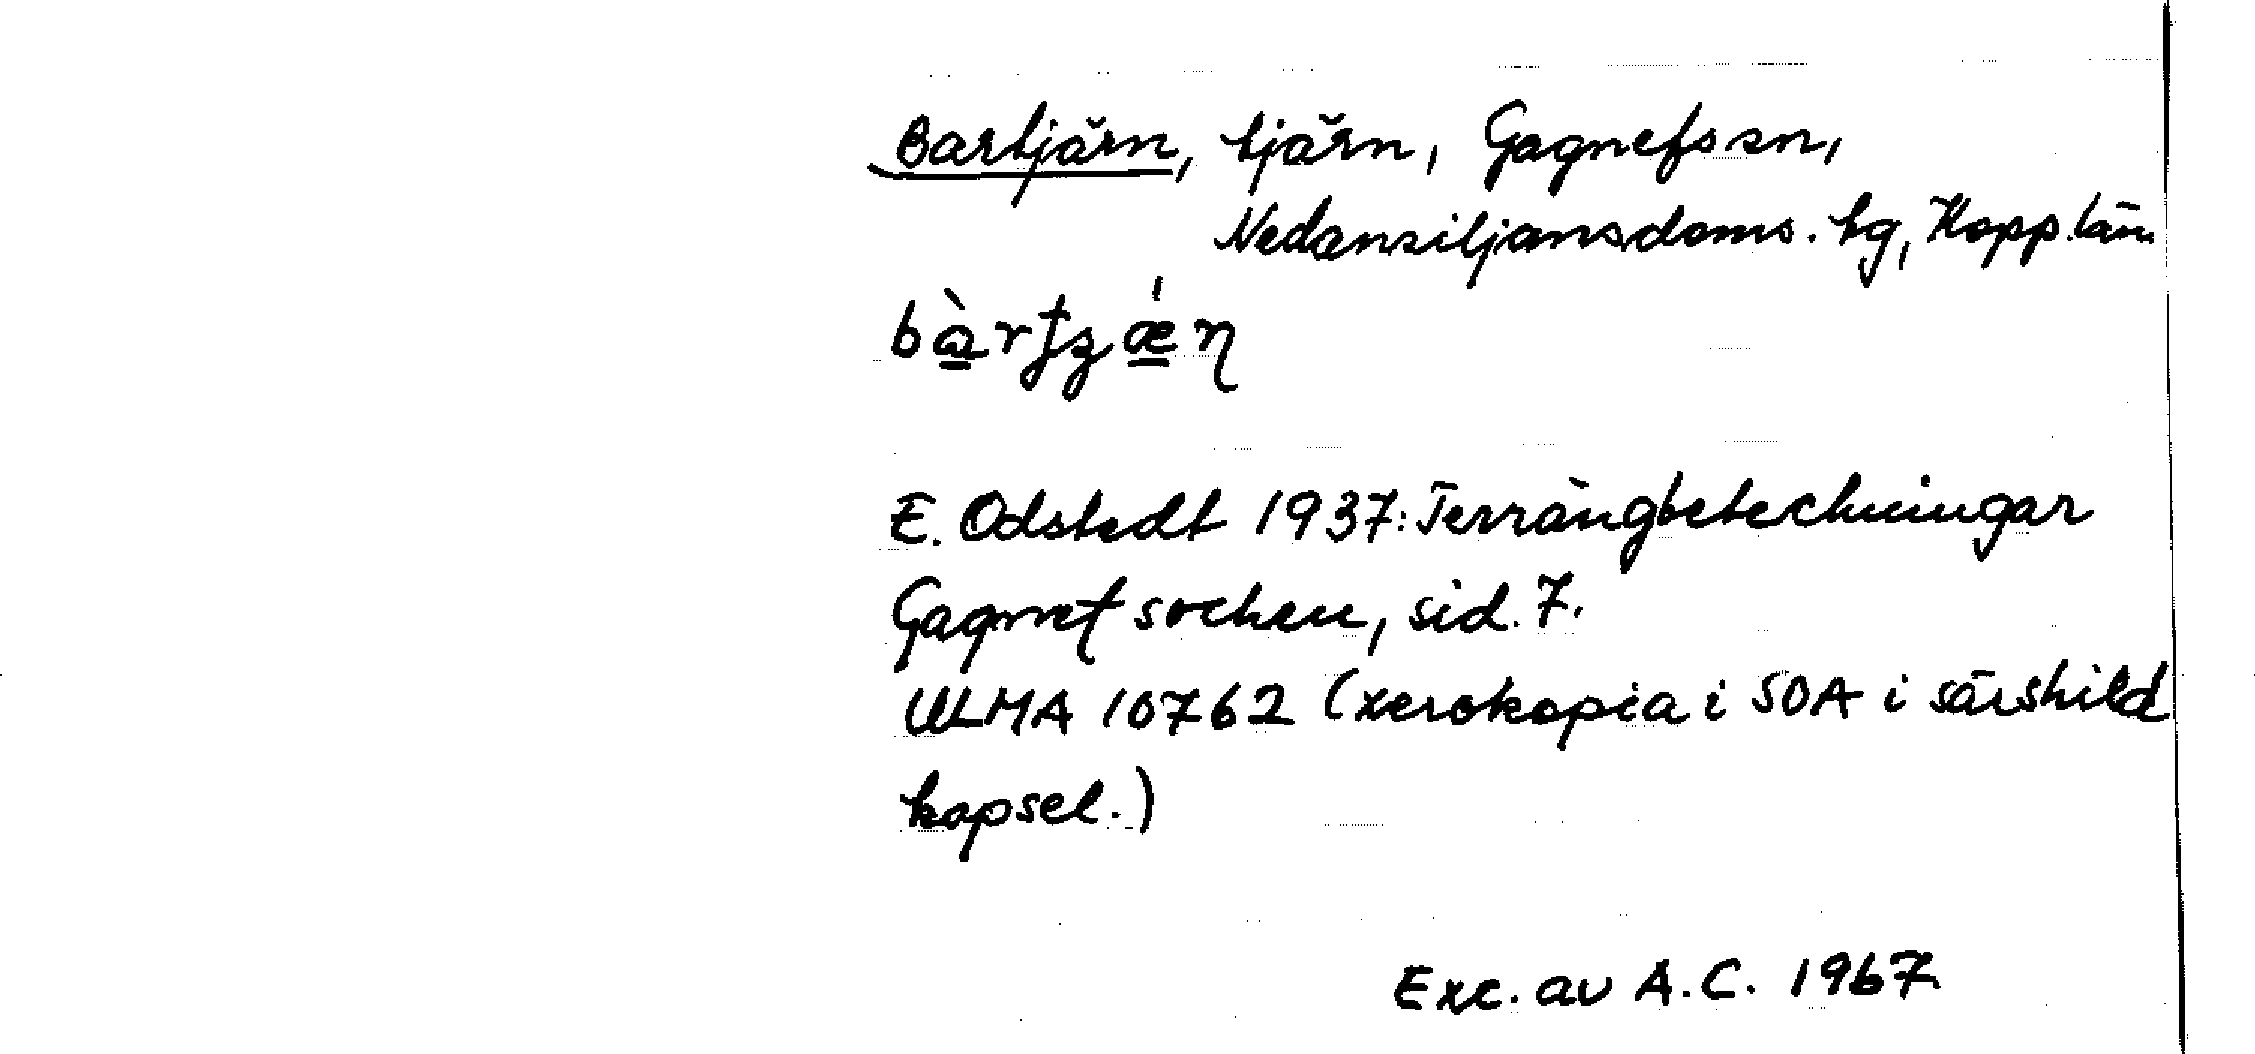 Bartjärn, tjärn, Gagnefs sn,
Nedansiljansdoms. tg, Kopp. län
E. Odstedt 1937: Terrängbeteckningar
Gagnef socken, sid. 7.
ULMA 10762 (xerokopia i SOA i särskild
kapsel.)
Exc. av A.C. 1967